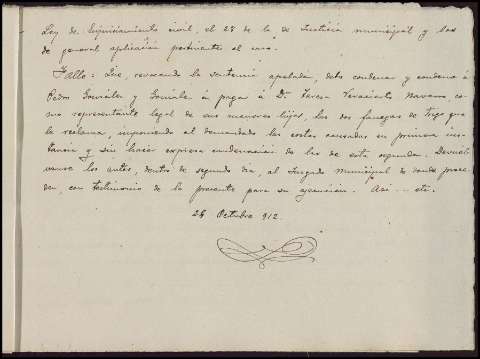 Ley de Enjuiciamiento civil, el 28 de la de Justicia municipal y las
de general aplicación pertinentes al caso.
Fallo: Que, revocando la sentencia apelada, debo condenar y condeno á
Pedro González y González á pagar á Dª Teresa Navarro, co-
mo representante legal de sus menores hijos, las dos fanegas de trigo que
la reclama, imponiendo al demandado las costas causadas en primera ins-
tancia y sin hacer expresa condenación de las de esta segunda. Devuél-
vanse los autos, dentro de segundo día, al Juzgado municipal de donde proce-
den, con testimonio de la presente para su ejecución. Así ... etc.
26 Octubre 912.